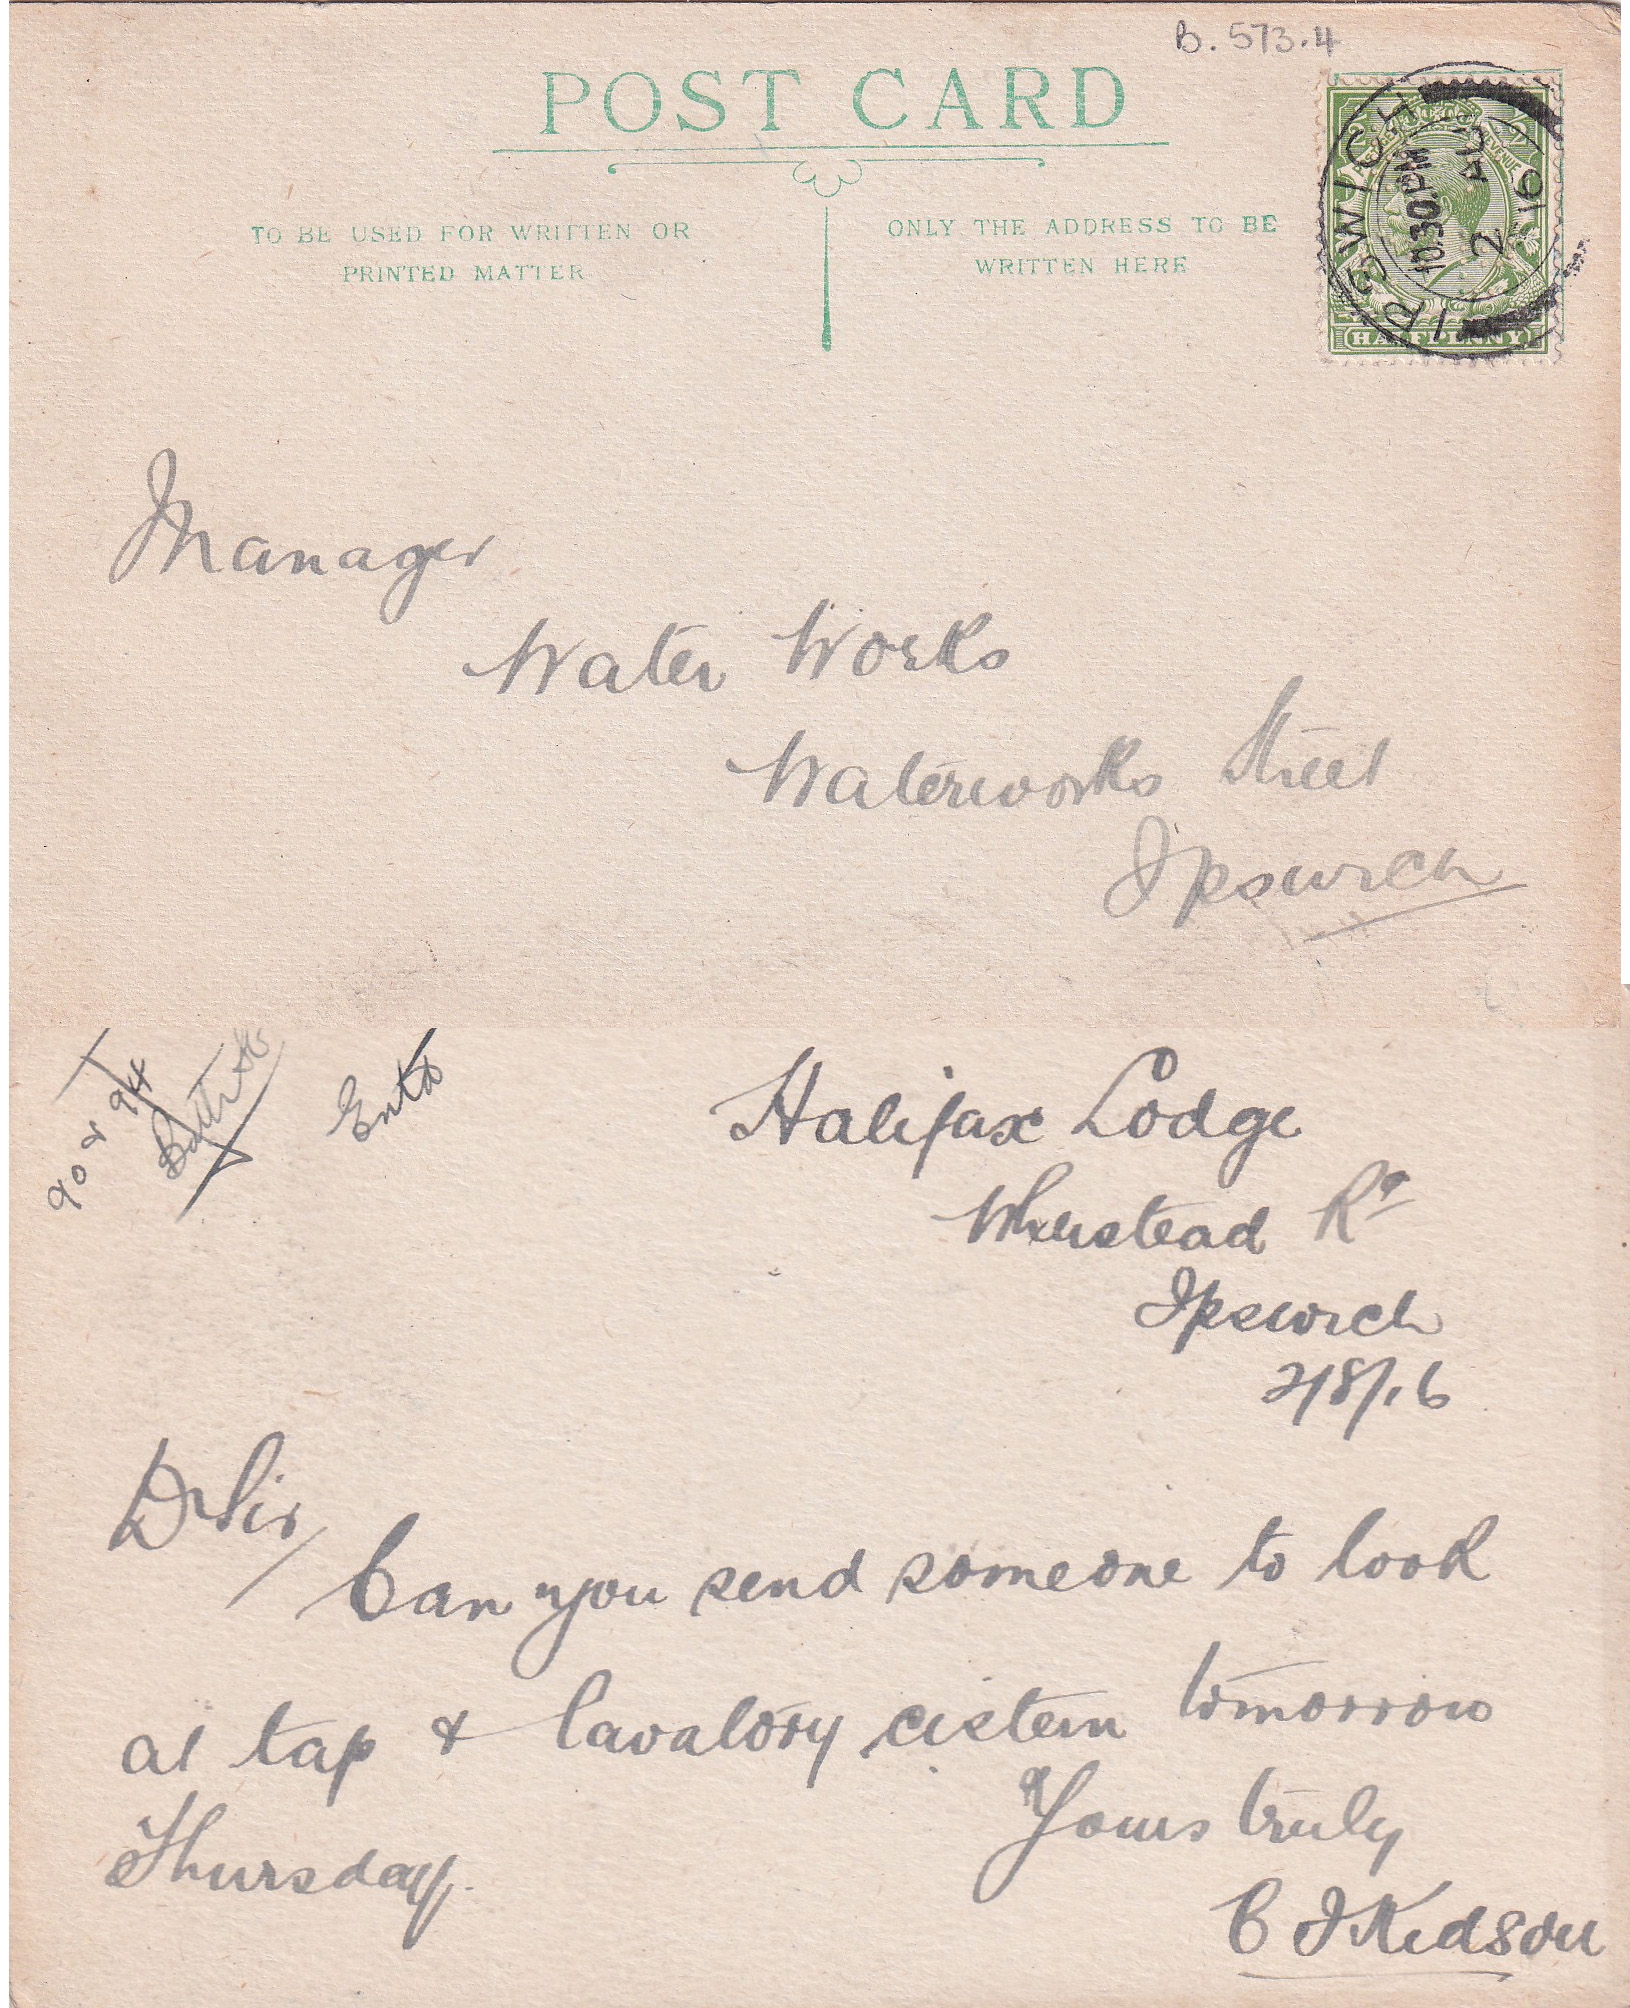 B. 573.4
POST CARD
TO BE USED FOR WRITTEN OR
PRINTED MATTER
ONLY THE ADDRESS TO BE
WRITTEN HERE
IPSWICH
10.30 PM
2 AU
16
HALFPENNY
Manager
Water Works
Waterworks Street
Ipswich
90 & 94
Entd
Halifax Lodge
Wherstead Rd
Ipswich
2/8/16
D Sir
Can you send someone to look
at tap & lavatory cistern tomorrow
Thursday.
Yours truly
C J Kedson